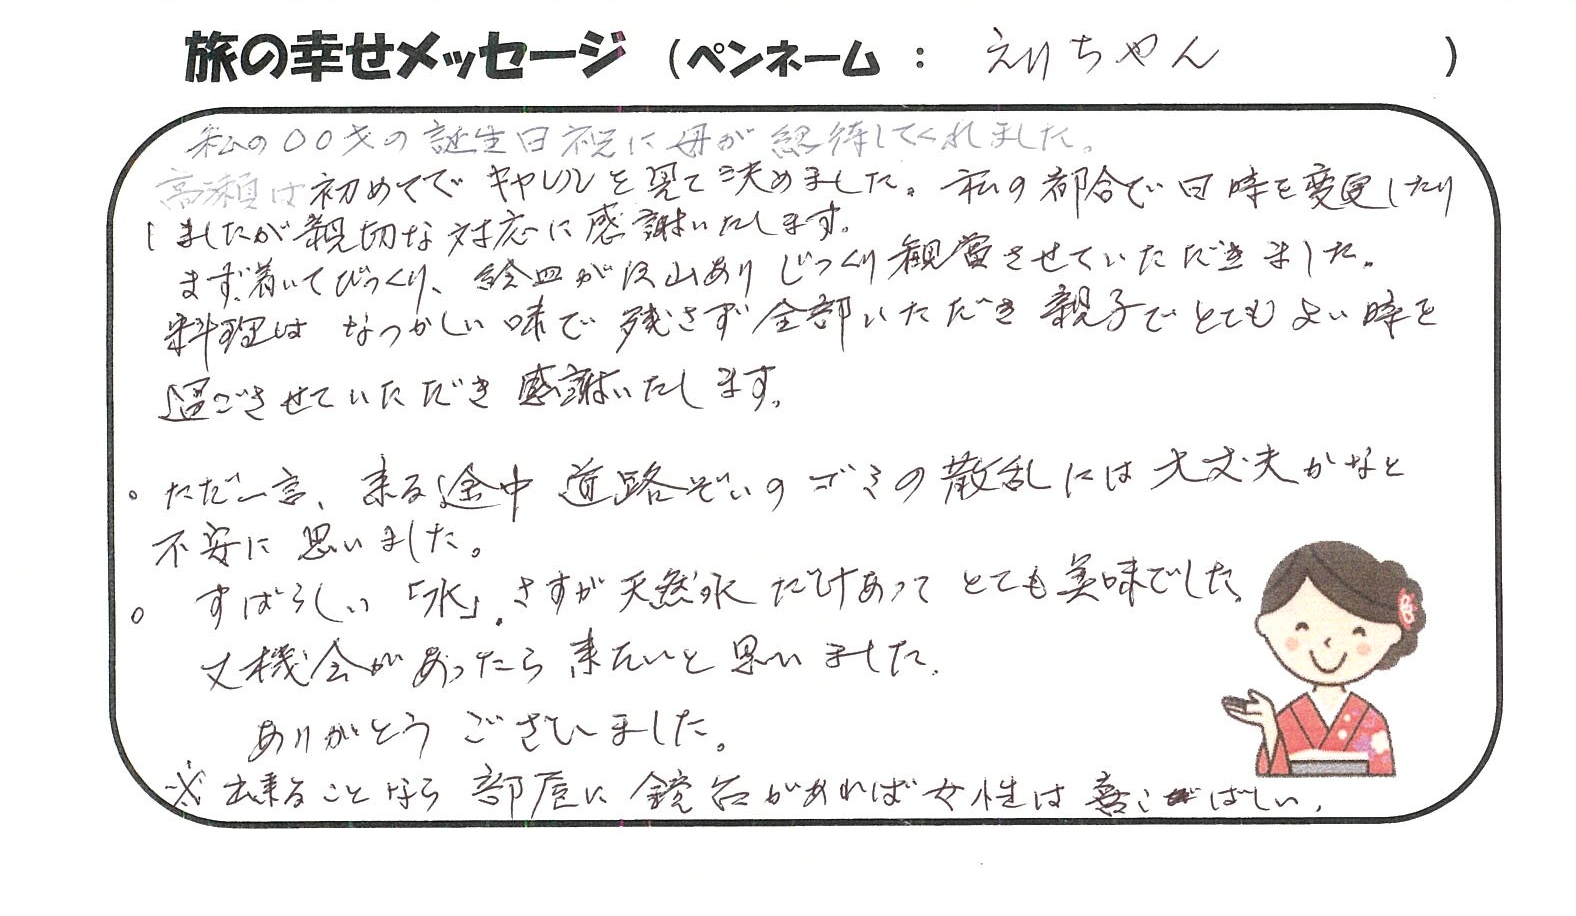 旅の幸せメッセージ (ペンネーム : えりちゃん )
私の〇〇才の誕生日祝に母が招待してくれました。
高瀬は初めてで キャレルを見て決めました。私の都合で日時を変更したり
しましたが親切な対応に感謝いたします。
まず、着いてびっくり、絵皿が沢山あり じっくり観賞させていただきました。
料理は なつかしい味で 残さず全部いただき 親子でとてもよい時を
過ごさせていただき 感謝いたします。
。ただ一言、来る途中 道路ぞいのゴミの散乱には大丈夫かなと
不安に思いました。
。すばらしい「水」. さすが天然水 だけあって とても美味でした。
又機会があったら来たいと思いました.
ありがとう ございました。
※出来ることなら 部屋に 鏡台があれば女性は喜こばしい.